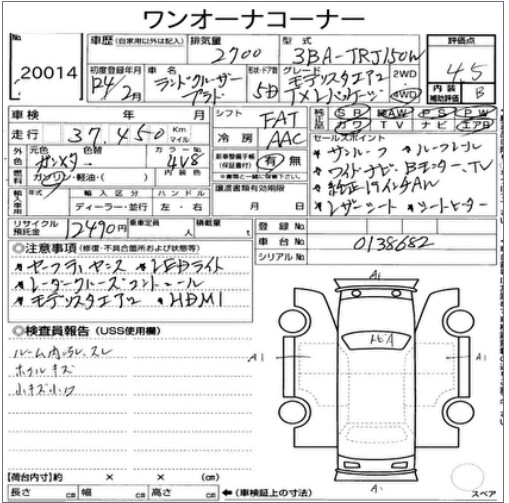 ワンオーナコーナー
No. 20014
車歴 (自家用以外は記入)
排気量 2700
型式 3BA-TRJ150W
評価点 4.5
初度登録年月 R4/2月
車名 ランドクルーザー プラド
形状・ドア数 5D
グレード モデリスタエアロ TX Lパッケージ
2WD・4WD
内装補助評価 B
車検 年 月
シフト FAT
純正品 SR AAW PS PW カワ TV ナビ エアB
走行 37,450 Km マイル
冷房 AAC
セールスポイント
外色 元色 ガンメタ 色替
カラーNo. 4V8
新車整備手帳(保証書付) 有・無
※書類と一緒に保管して下さい。
*サンルーフ *ルーフレール
燃料 ガソリン・軽油・( )
内装色
*ワイドナビ・Bモニター・TV
輸入車用 年式 輸入区分 ハンドル
ディーラー・並行 左・右
譲渡書類有効期限
月 日
*純正19インチAW
*レザーシート *シートヒーター
リサイクル預託金 12490円
乗車定員 人
積載量 t
登録No.
車台No. 0138682
シリアルNo.
◎注意事項 (修復・不具合箇所および状態等)
*セーフティセンス *LEDライト
*レーダークルーズコントロール
*モデリスタエアロ *HDMI
◎検査員報告 (USS使用欄)
ルーム内汚レ、スレ
ホイルキズ
小キズ小凹
A1
トビA
A1
A1
A1
スペア
【荷台内寸】約 × × (cm)
長さ cm 幅 cm 高さ cm ←(車検証上の寸法)